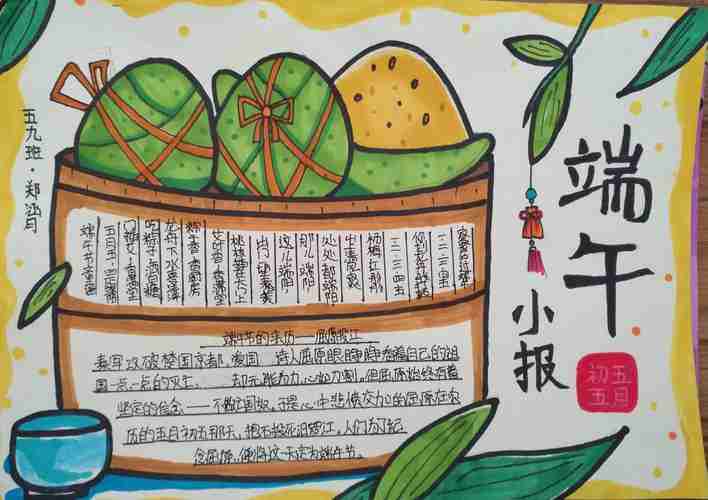 端午
小报
五月
初五
五九班·郑
端午节童谣
五月五
门插艾 香满堂
吃粽子 洒白糖
龙舟下水喜洋洋
粽子香 香厨房
艾叶香 香满堂
桃枝插在大门上
出门一望麦儿黄
这儿端阳
那儿端阳
处处都端阳
杨梅红
端午节的来历——屈原投江
秦军攻破楚国京都,爱国 诗人屈原眼睁睁看着自己的祖
国一点一点的灭亡......却无能为力心如刀割,但屈原始终有着
坚定的信念——不做亡国奴,于是心中悲愤交加的屈原在农
历的五月初五那天,抱石投死汨罗江,人们为了纪
念屈原,便将这一天定为端午节。